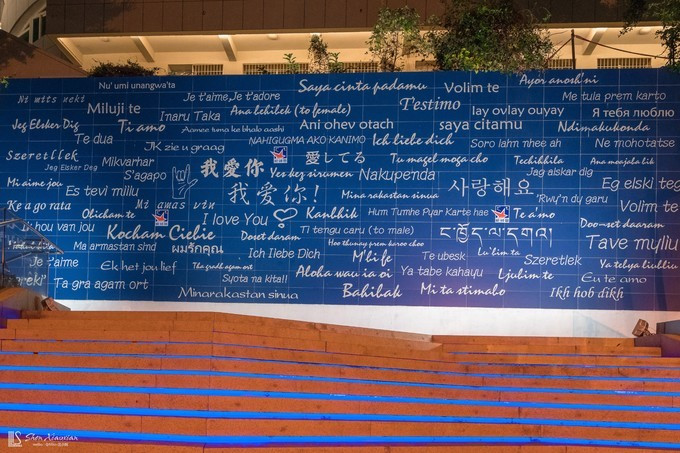 Nu' umi unangwa'ta
Saya cinta padamu
Ayor anosh'ni
Volim te
Miluji te
Je t'aime, Je t'adore
T'estimo
Me tula prem karto
Inaru Taka
Ana behibek (to female)
lay ovlay ouyay
Я тебя люблю
Jeg Elsker Dig
Ti amo
Aamee tuma ke bhalo aashi
Ani ohev otach
saya citamu
Ndimakukonda
Te dua
JK zie u graag
NAHIGUGMA AKO KANIMO
Ich liebe dich
Soro lahn nhee ah
Ne mohotatse
Szeretlek
Jeg Elsker Deg
Mikvarhar
我爱你
愛してる
Tu magel moga cho
Techihhila
Ana moajaba lik
S'agapo
Yes kez sirumen
Nakupenda
Jag alskar dig
Mi aime jou
Es tevi miliu
我爱你!
Mina rakastan sinua
사랑해요
Rwy'n dy garu
Eg elski teg
Ke a go rata
Olicham te
I love You
Kanbhik
Hum Tumhe Pyar Karte hae
Te amo
Volim te
Ik hou van jou
Kocham Ciebie
Doset daram
Ti tengu caru (to male)
Doo-set daaram
Ma armastan sind
ผมรักคุณ
Ich Ilebe Dich
Hoo thunay prem karoo choo
Lu'bim te
Tave myliu
Je t'aime
Ek het jou lief
M'bi fe
Te ubesk
Szeretlek
Ya telyu liubliu
Syota na kita!!
Aloha wau ia oi
Ya tabe kahayu
Ljulim te
Eu te amo
Ta gra agam ort
Minarakastan sinua
Bahibak
Mi ta stimabo
Ikh hob dikh